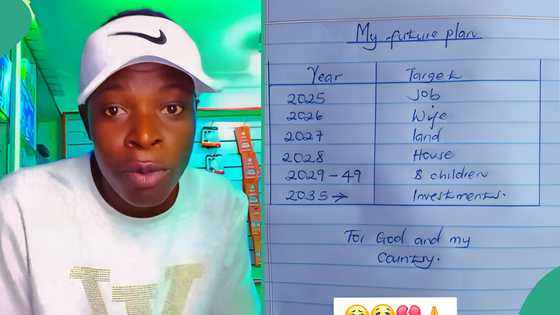 My future plan.
Year Target
2025 Job
2026 Wife
2027 land
2028 House
2029 - 49 8 children
2035 → Investments.
For God and my
Country.